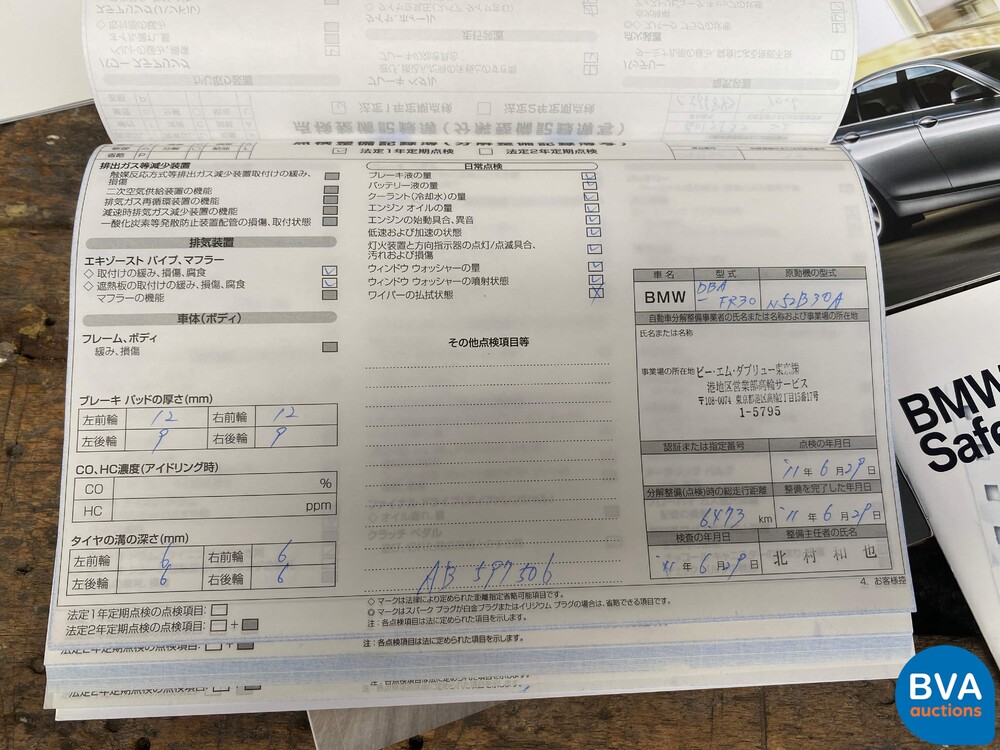 法定1年定期点検 法定2年定期点検
排出ガス等減少装置
触媒反応方式等排出ガス減少装置取付けの緩み、
損傷
二次空気供給装置の機能
排気ガス再循環装置の機能
減速時排気ガス減少装置の機能
一酸化炭素等発散防止装置配管の損傷、取付状態
排気装置
エキゾースト パイプ、マフラー
◇ 取付けの緩み、損傷、腐食
◇ 遮熱板の取付けの緩み、損傷、腐食
マフラーの機能
車体(ボディ)
フレーム、ボディ
緩み、損傷
ブレーキ パッドの厚さ(mm)
左前輪 12 右前輪 12
左後輪 9 右後輪 9
CO、HC濃度(アイドリング時)
CO %
HC ppm
タイヤの溝の深さ(mm)
左前輪 6 右前輪 6
左後輪 6 右後輪 6
法定1年定期点検の点検項目:
法定2年定期点検の点検項目: +
日常点検
ブレーキ液の量
バッテリー液の量
クーラント(冷却水)の量
エンジン オイルの量
エンジンの始動具合、異音
低速および加速の状態
灯火装置と方向指示器の点灯/点滅具合、
汚れおよび損傷
ウィンドウ ウォッシャーの量
ウィンドウ ウォッシャーの噴射状態
ワイパーの払拭状態
その他点検項目等
AB 597306
◇ マークは法律により定められた距離指定省略可能項目です。
◎ マークはスパーク プラグが白金プラグまたはイリジウム プラグの場合は、省略できる項目です。
注:各点検項目は法に定められた項目を示します。
車名 型式 原動機の型式
BMW DBA
- FR30 N52B30A
自動車分解整備事業者の氏名または名称および事業場の所在地
氏名または名称
事業場の所在地 ビー・エム・ダブリュー東京㈱
港地区営業部高輪サービス
〒108-0074 東京都港区高輪2丁目15番17号
1-5795
認証または指定番号 点検の年月日
'11 年 6 月 29 日
分解整備(点検)時の総走行距離 整備を完了した年月日
6473 km '11 年 6 月 29 日
検査の年月日 整備主任者の氏名
'11 年 6 月 29 日 北村和也
4. お客様控
注:各点検項目は法に定められた項目を示します。
BMW
Safe
BVA
auctions